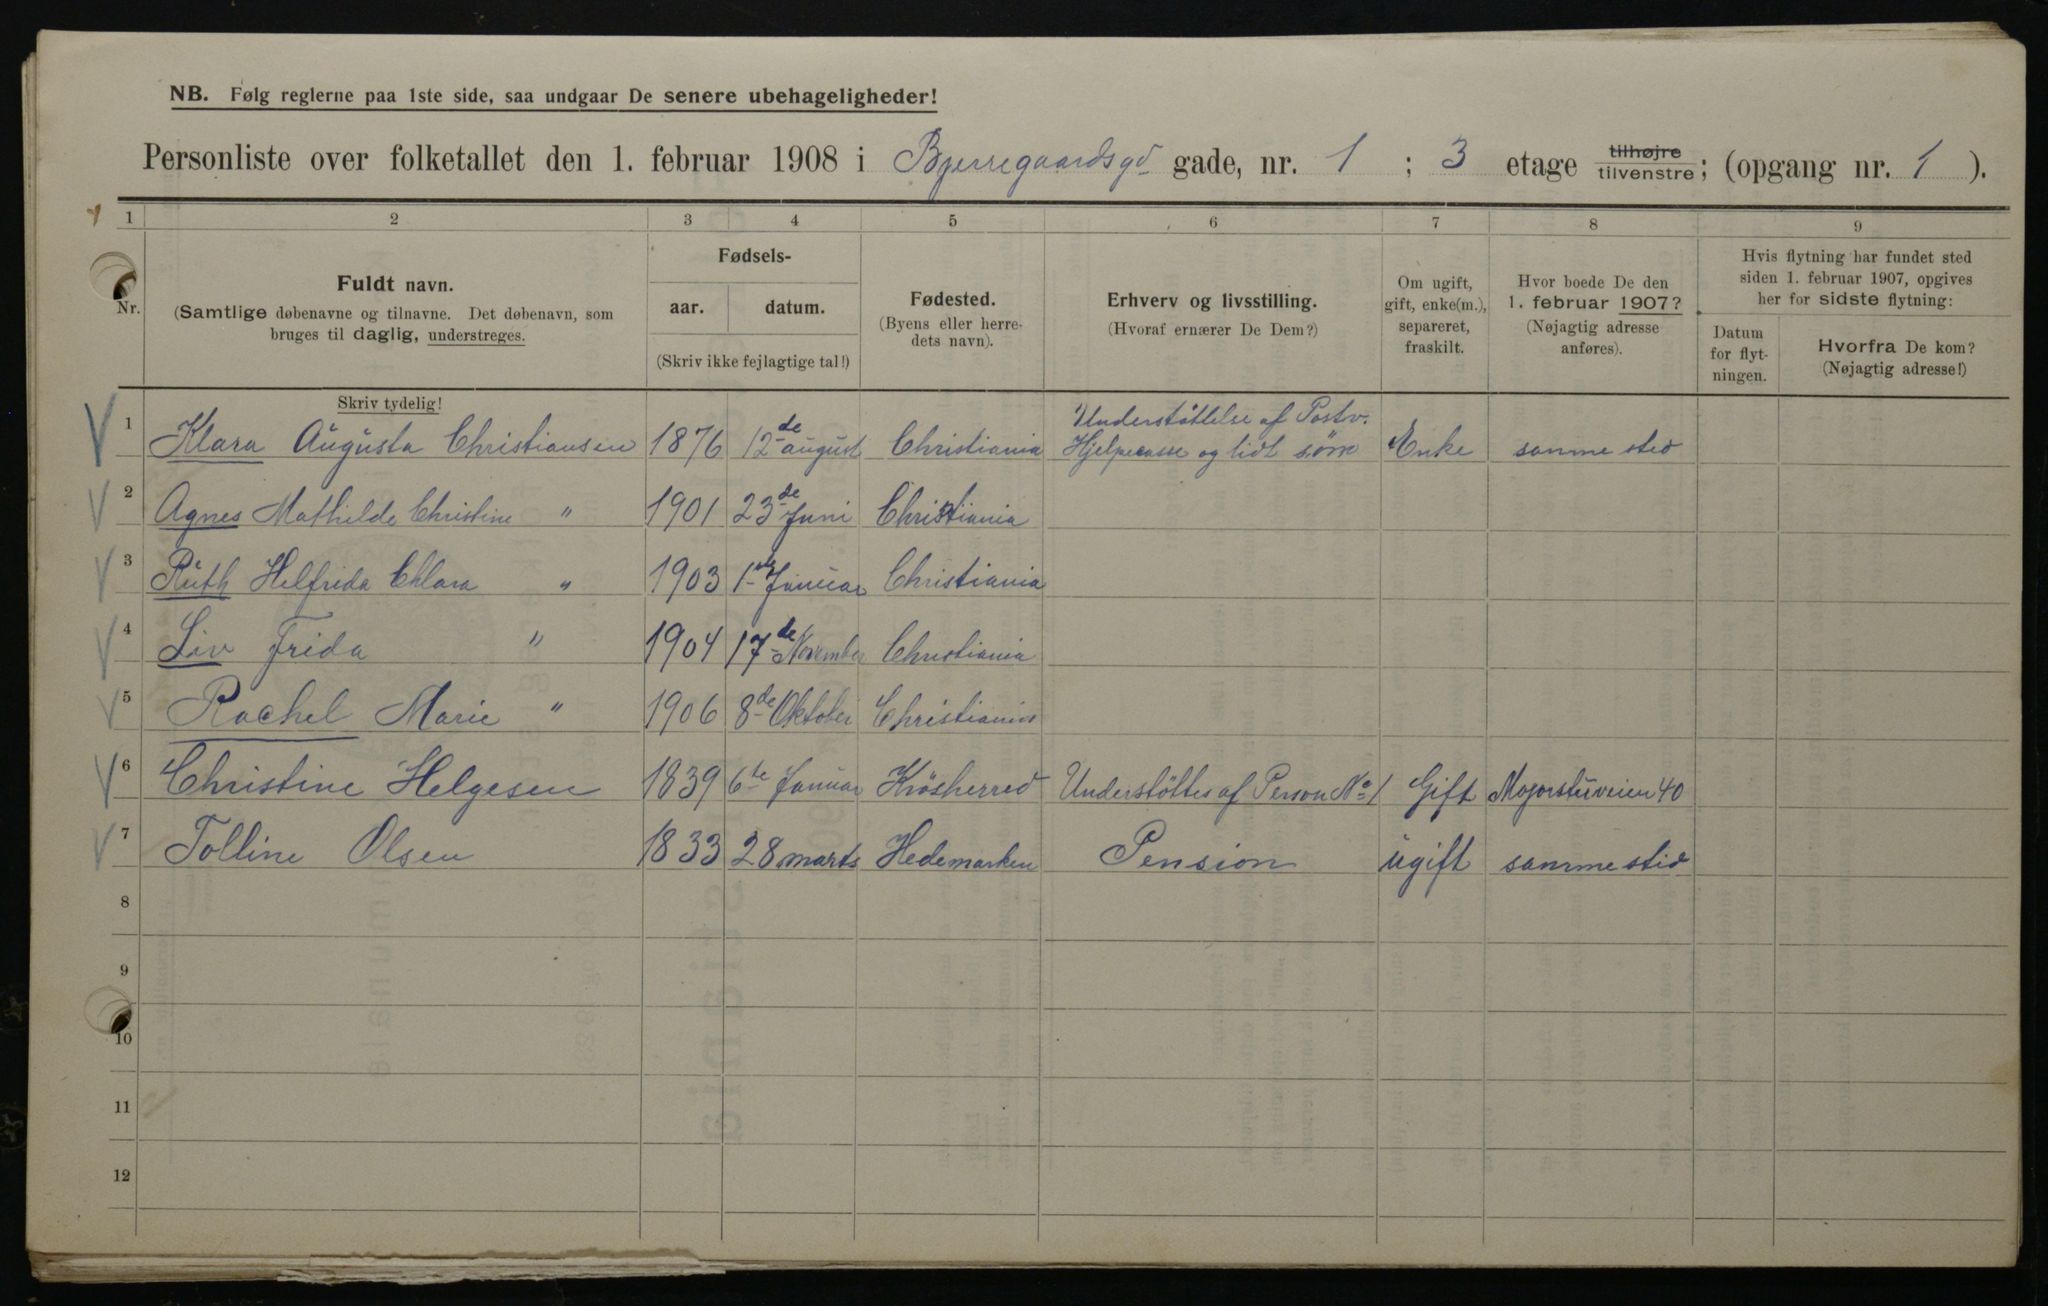 NB. Følg reglerne paa 1ste side, saa undgaar De senere ubehageligheder!
Personliste over folketallet den 1. februar 1908 i Bjerregaardsgd gade, nr. 1 ; 3 etage tilhøjre tilvenstre ; (opgang nr. 1 ).
1 2 3 4 5 6 7 8 9
Nr.
Fuldt navn.
(Samtlige døbenavne og tilnavne. Det døbenavn, som
bruges til daglig, understreges.
Fødsels-
aar. datum.
(Skriv ikke fejlagtige tal!)
Fødested.
(Byens eller herre-
dets navn).
Erhverv og livsstilling.
(Hvoraf ernærer De Dem?)
Om ugift,
gift, enke(m.),
separeret,
fraskilt.
Hvor boede De den
1. februar 1907?
(Nøjagtig adresse
anføres).
Hvis flytning har fundet sted
siden 1. februar 1907, opgives
her for sidste flytning:
Datum
for flyt-
ningen.
Hvorfra De kom?
(Nøjagtig adresse!)
Skriv tydelig!
1 Klara Augusta Christiansen 1876 12de august Christiania Understøttelse af Postv. Hjelpecasse og lidt søm Enke samme sted
2 Agnes Mathilde Christine " 1901 23de Juni Christiania
3 Ruth Helfrida Chlara " 1903 1ste Januar Christiania
4 Liv Frida " 1904 17de November Christiania
5 Rachel Marie " 1906 8de Oktober Christiania
6 Christine Helgesen 1839 6te Januar Krösherred Understöttes af Person No 1 Gift Majorstuveien 40
7 Tolline Olsen 1833 28 marts Hedemarken Pension ugift samme sted
8
9
10
11
12